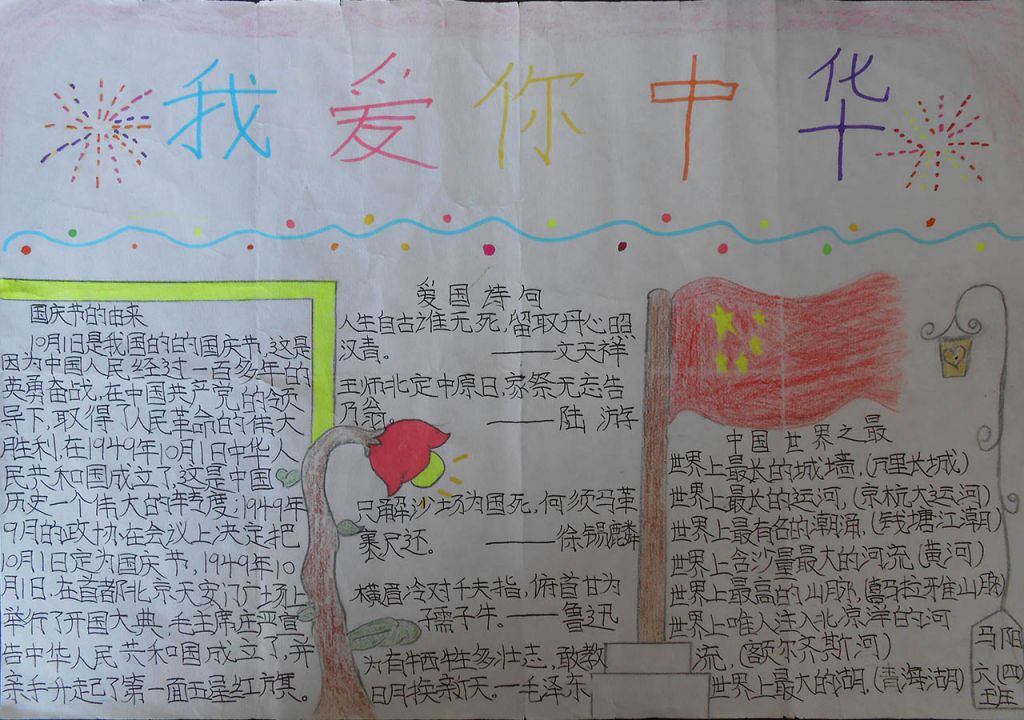 我爱你中华
国庆节的由来
10月1日是我国的的国庆节,这是
因为中国人民经过一百多年的
英勇奋战,在中国共产党的领
导下,取得了人民革命的伟大
胜利,在1949年10月1日中华人
民共和国成立了,这是中国
历史一个伟大的转变;1949年
9月的政协在会议上决定把
10月1日定为国庆节,1949年10
月1日,在首都北京天安门广场上
举行了开国大典,毛主席庄严宣
告中华人民共和国成立了,并
亲手升起了第一面五星红旗。
爱国诗句
人生自古谁无死,留取丹心照
汉青。——文天祥
王师北定中原日,家祭无忘告
乃翁。——陆游
只解沙场为国死,何须马革
裹尸还。——徐锡麟
横眉冷对千夫指,俯首甘为
孺子牛。——鲁迅
为有牺牲多壮志,敢教
日月换新天。—毛泽东
中国世界之最
世界上最长的城墙,(万里长城)
世界上最长的运河,(京杭大运河)
世界上最有名的潮涌,(钱塘江潮)
世界上含沙量最大的河流,(黄河)
世界上最高的山脉,(喜马拉雅山脉)
世界上唯一注入北冰洋的河
流,(额尔齐斯河)
世界上最大的湖,(青海湖)
马阳
六(四)
班